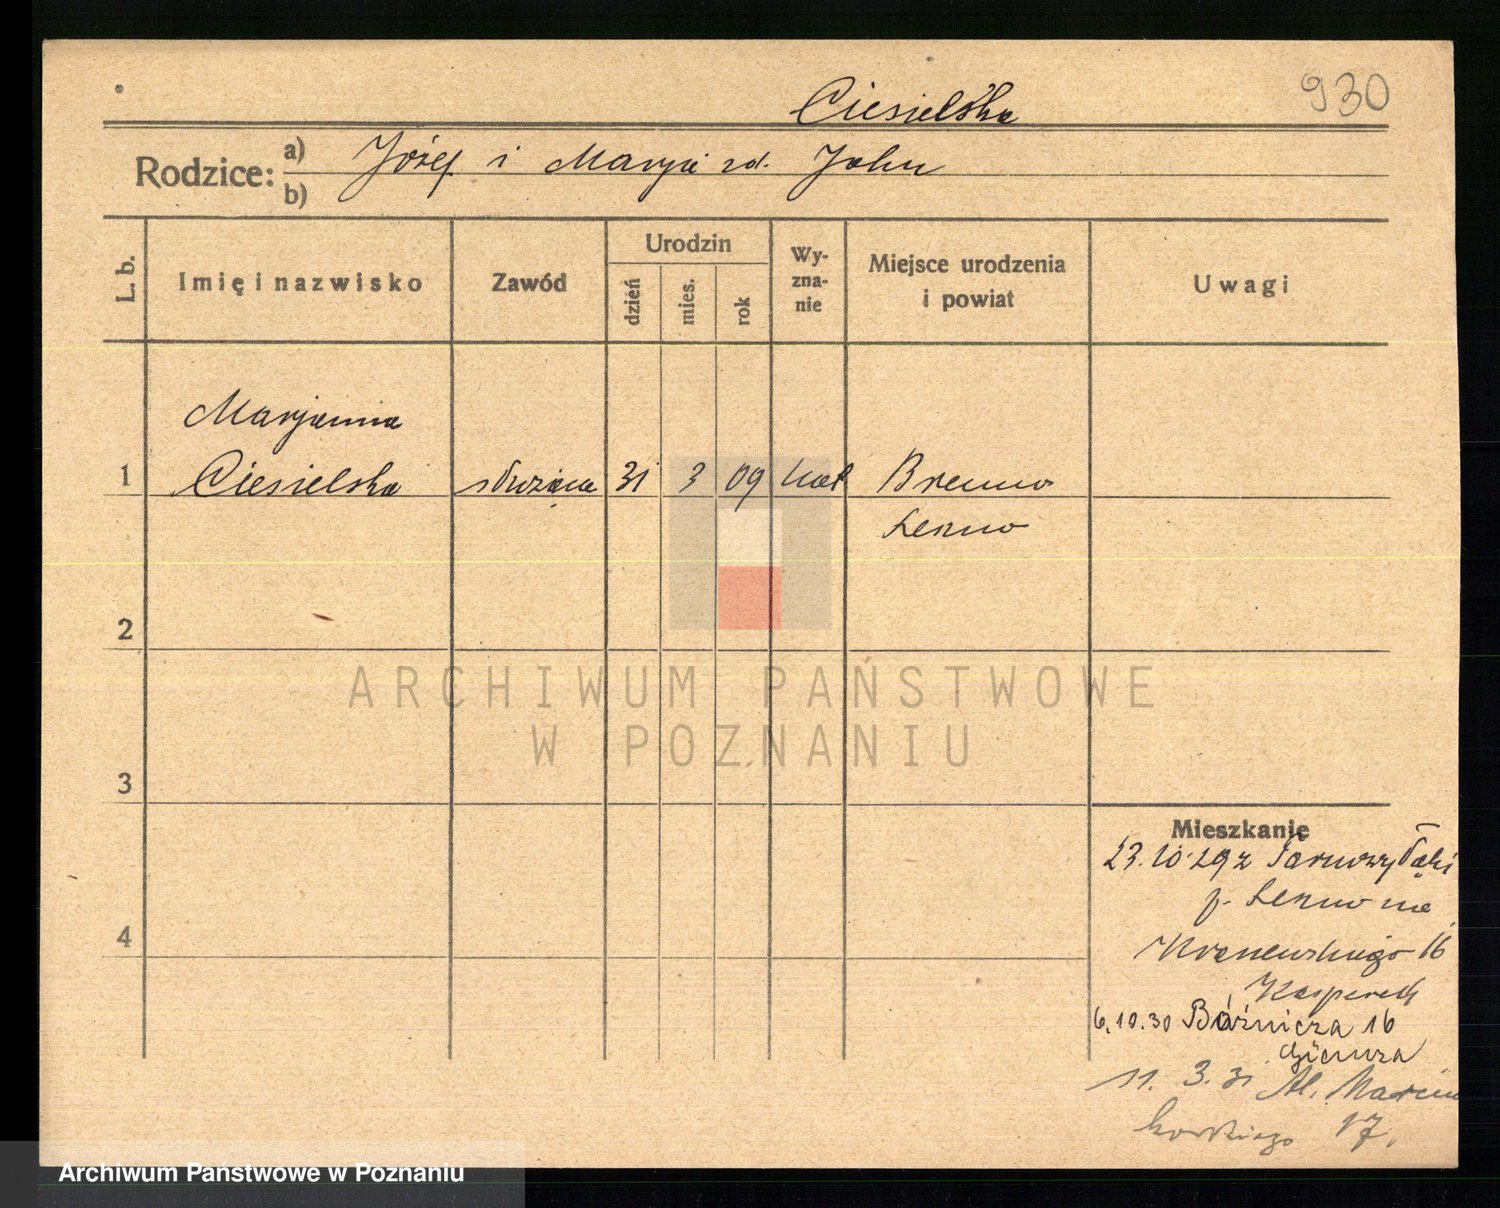 930
Ciesielska
Rodzice: a) Józef i Maryi zd. John
b)
L. b.
Imię i nazwisko
Zawód
Urodzin
dzień
mies.
rok
Wy-
zna-
nie
Miejsce urodzenia
i powiat
Uwagi
Marjanna
1 Ciesielska służąca 31 3 09 kat Brenno
Leszno
2
3
4
Mieszkanie
23.10.29 z
p. Leszno na
Kraszewskiego 16
6.10.30 Bóźnicza 16
11. 3. 31 Al. Marcin
kowskiego 17.
ARCHIWUM PAŃSTWOWE
W POZNANIU
Archiwum Państwowe w Poznaniu